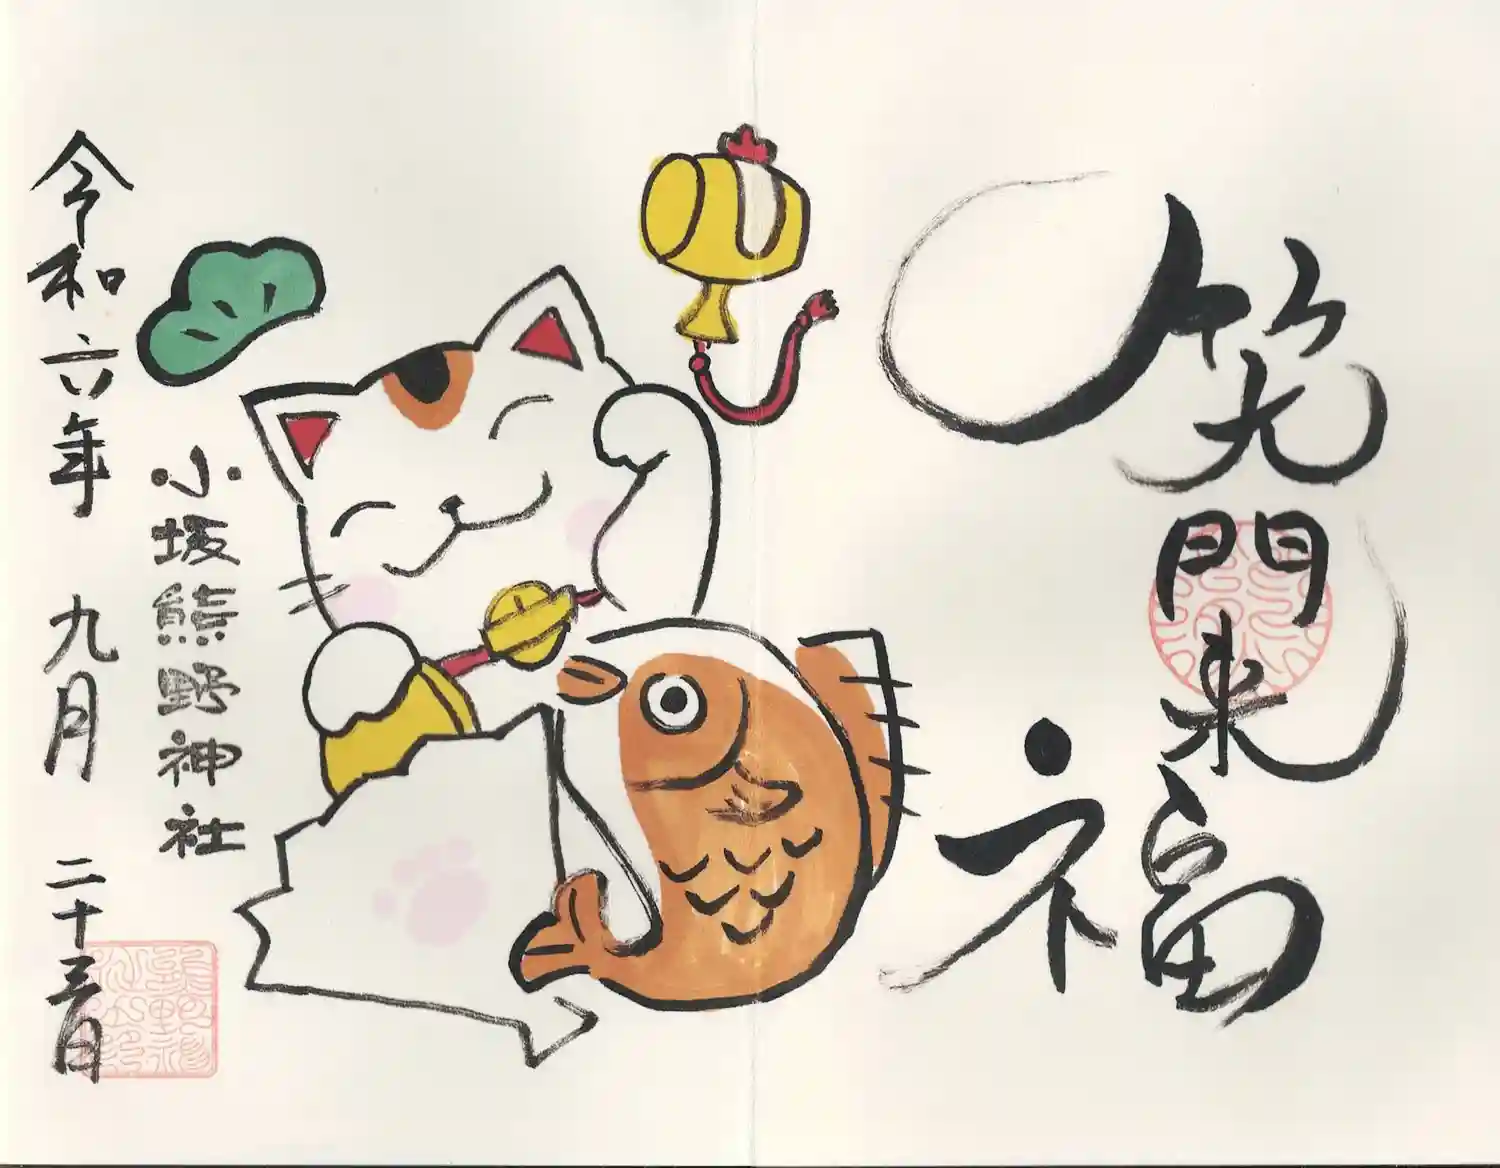 笑門来福
小坂熊野神社
令和六年 九月 二十三日